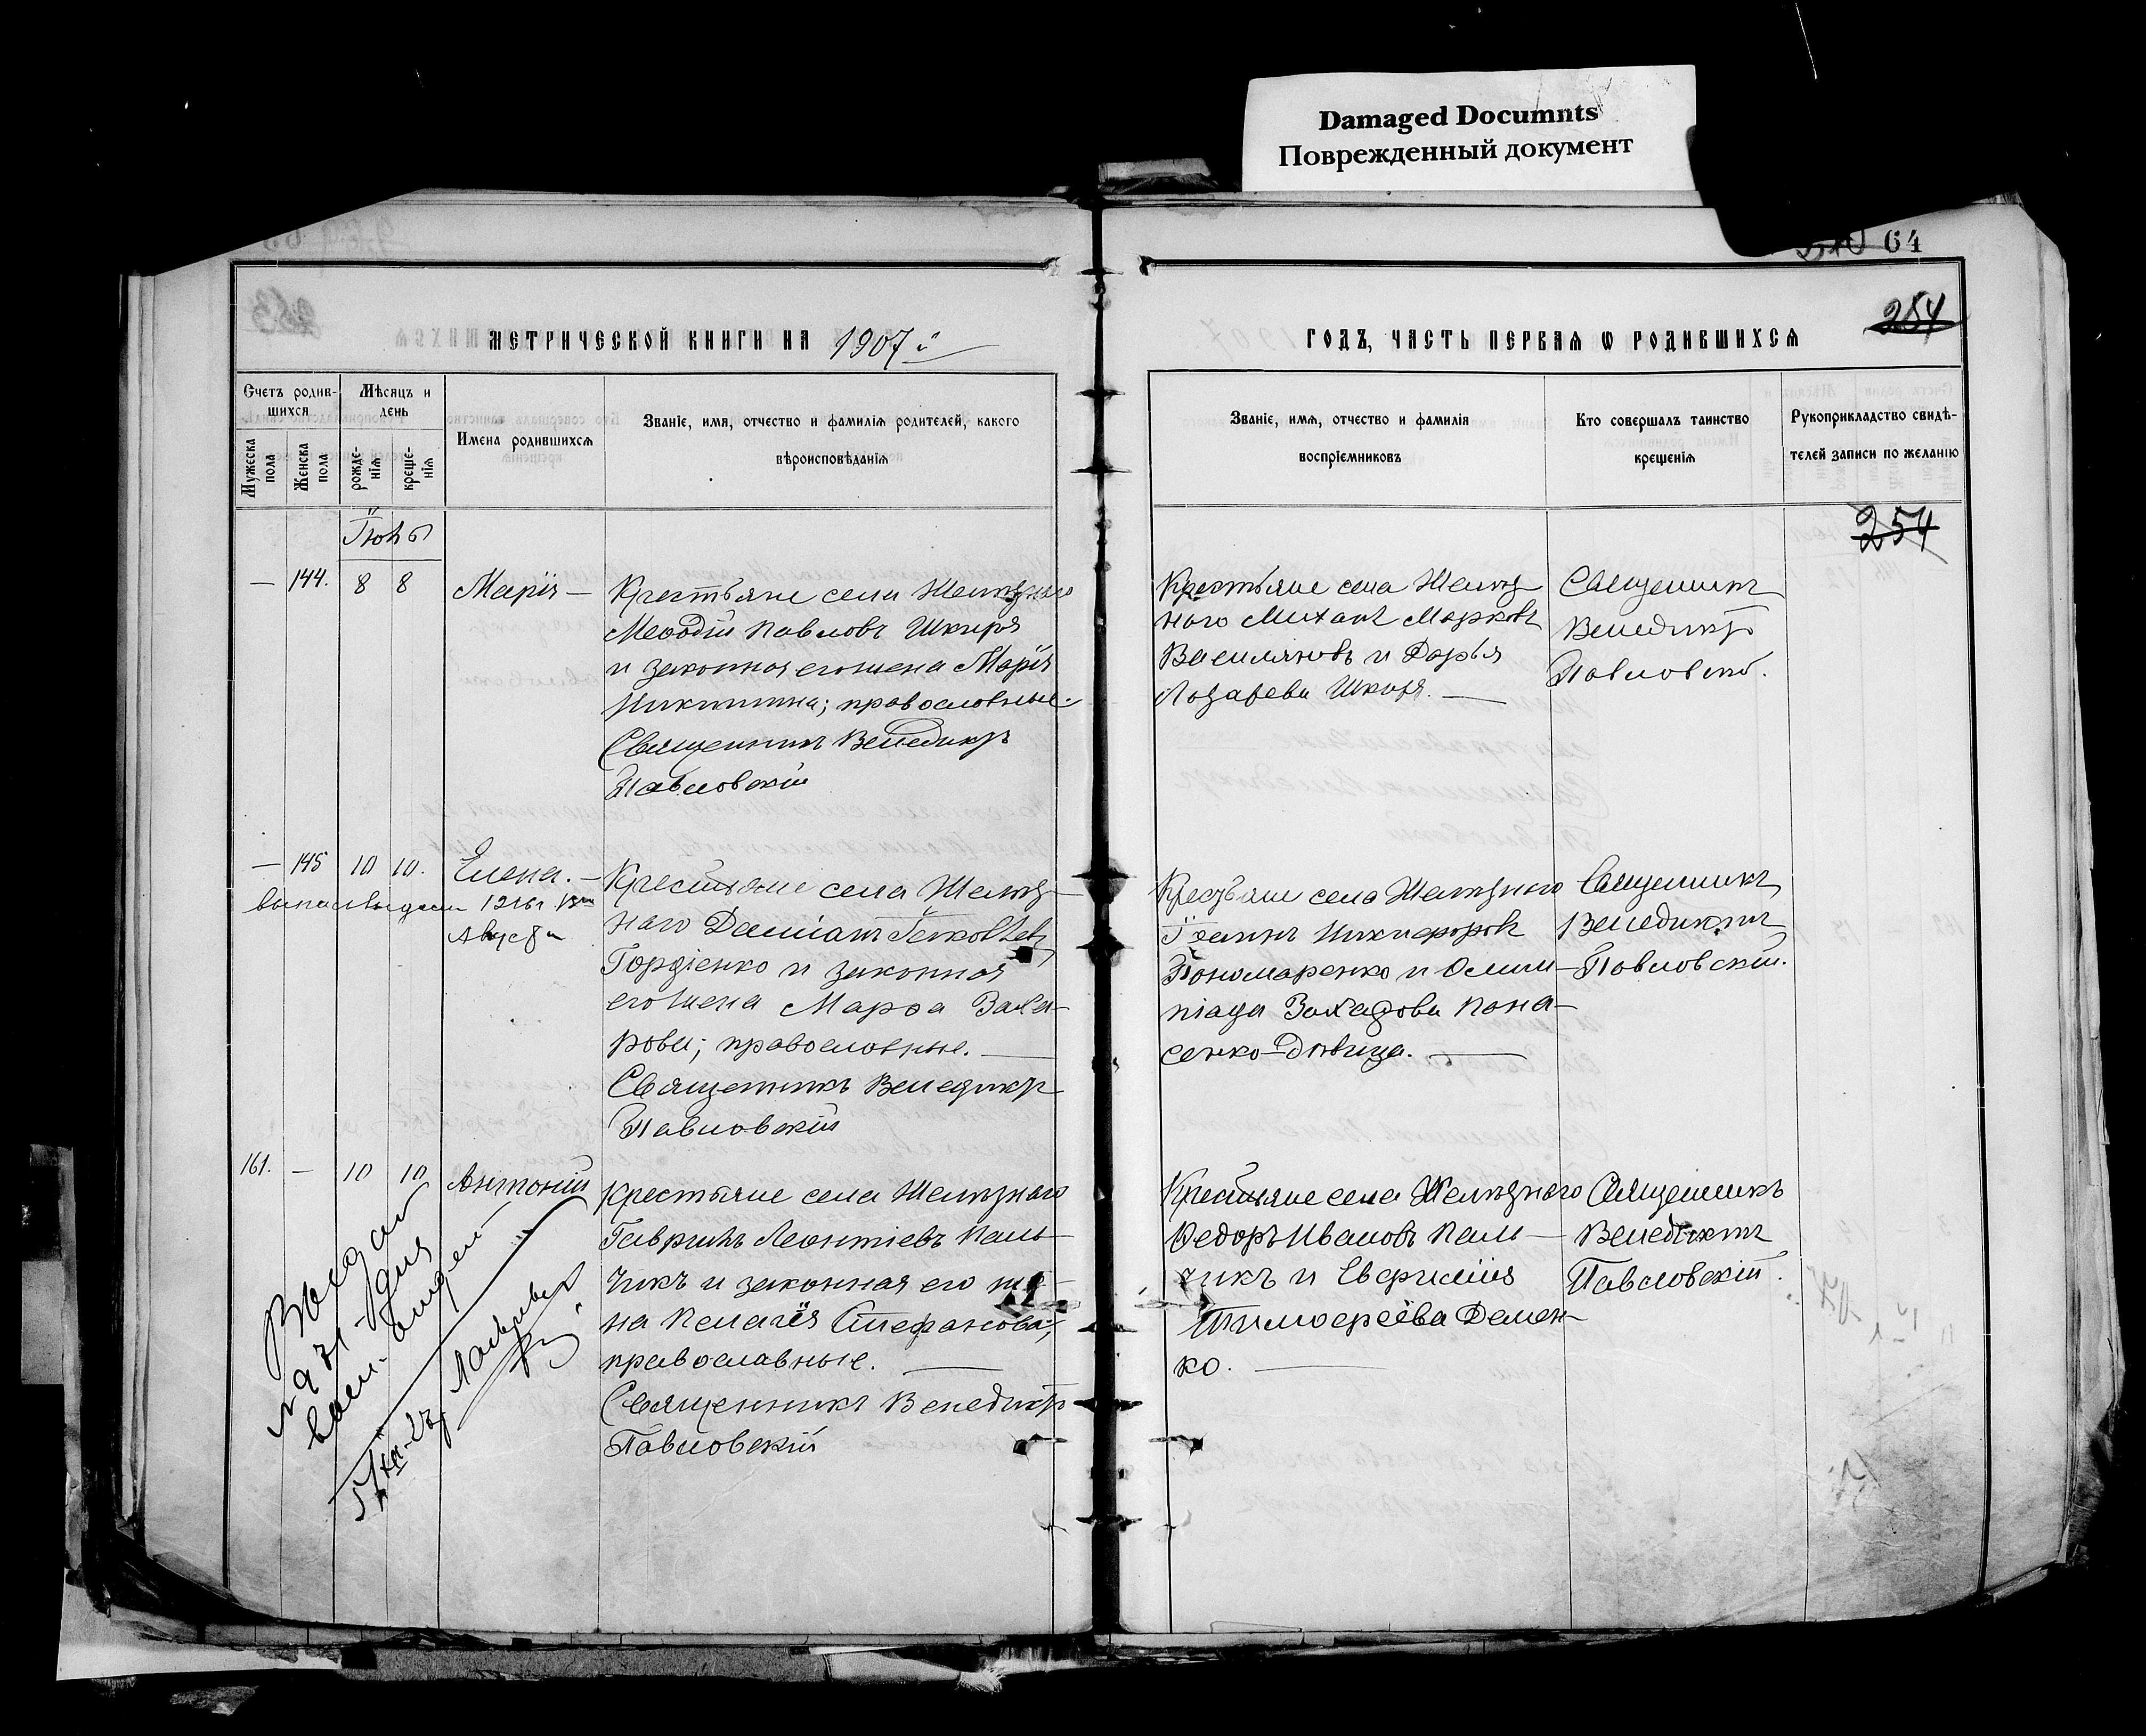 Damaged Documnts
Поврежденный документ
64
254
МЕТРИЧЕСКОЙ КНИГИ НА 1907й
ГОДЪ, ЧАСТЬ ПЕРВАЯ Ѡ РОДИВШИХСЯ
Счетъ родив-
шихся
Мужеска пола
Женска пола
Мѣсяцъ и
день
рожде-
нія
креще-
нія
Имена родившихся
Званіе, имя, отчество и фамилія родителей, какого
вѣроисповѣданія
Званіе, имя, отчество и фамилія
воспріемниковъ
Кто совершалъ таинство
крещенія
Рукоприкладство свидѣ-
телей записи по желанію
254
Іюнь
— 144. 8 8 Марія —
Крестьяне села Желѣзнаго
Меѳодій Павловъ Шкиря
и законная его жена Марія
Никитина; православные.
Священникъ Венедиктъ
Павловскій
Крестьяне села Желѣз-
наго Михаилъ Марковъ
Василяковъ и Дарья
Лазарева Шкиря. —
Священникъ
Венедиктъ
Павловскій.
— 145 10 10. Елена. —
Августа
Крестьяне села Желѣз-
наго Даміанъ Іаковлевъ
Гордіенко и законная
его жена Марѳа Заха-
рова; православные. —
Священникъ Венедиктъ
Павловскій
Крестьяне села Желѣзнаго
Никифоровъ
Пономаренко и Олим-
піада Захарова Пона-
сенко-дѣвица. —
Священникъ
Венедиктъ
Павловскій.
161. — 10 10 Антоній
Крестьяне села Желѣзнаго
Гавріилъ Леонтіевъ Паль-
чикъ и законная его же-
на Пелагія Стефанова;
православные. —
Священникъ Венедиктъ
Павловскій
Крестьяне села Желѣзнаго
Ѳедоръ Ивановъ Паль-
чикъ и Евфимія
Тимоѳеева Демен-
ко. —
Священникъ
Венедиктъ
Павловскій.
Выдан